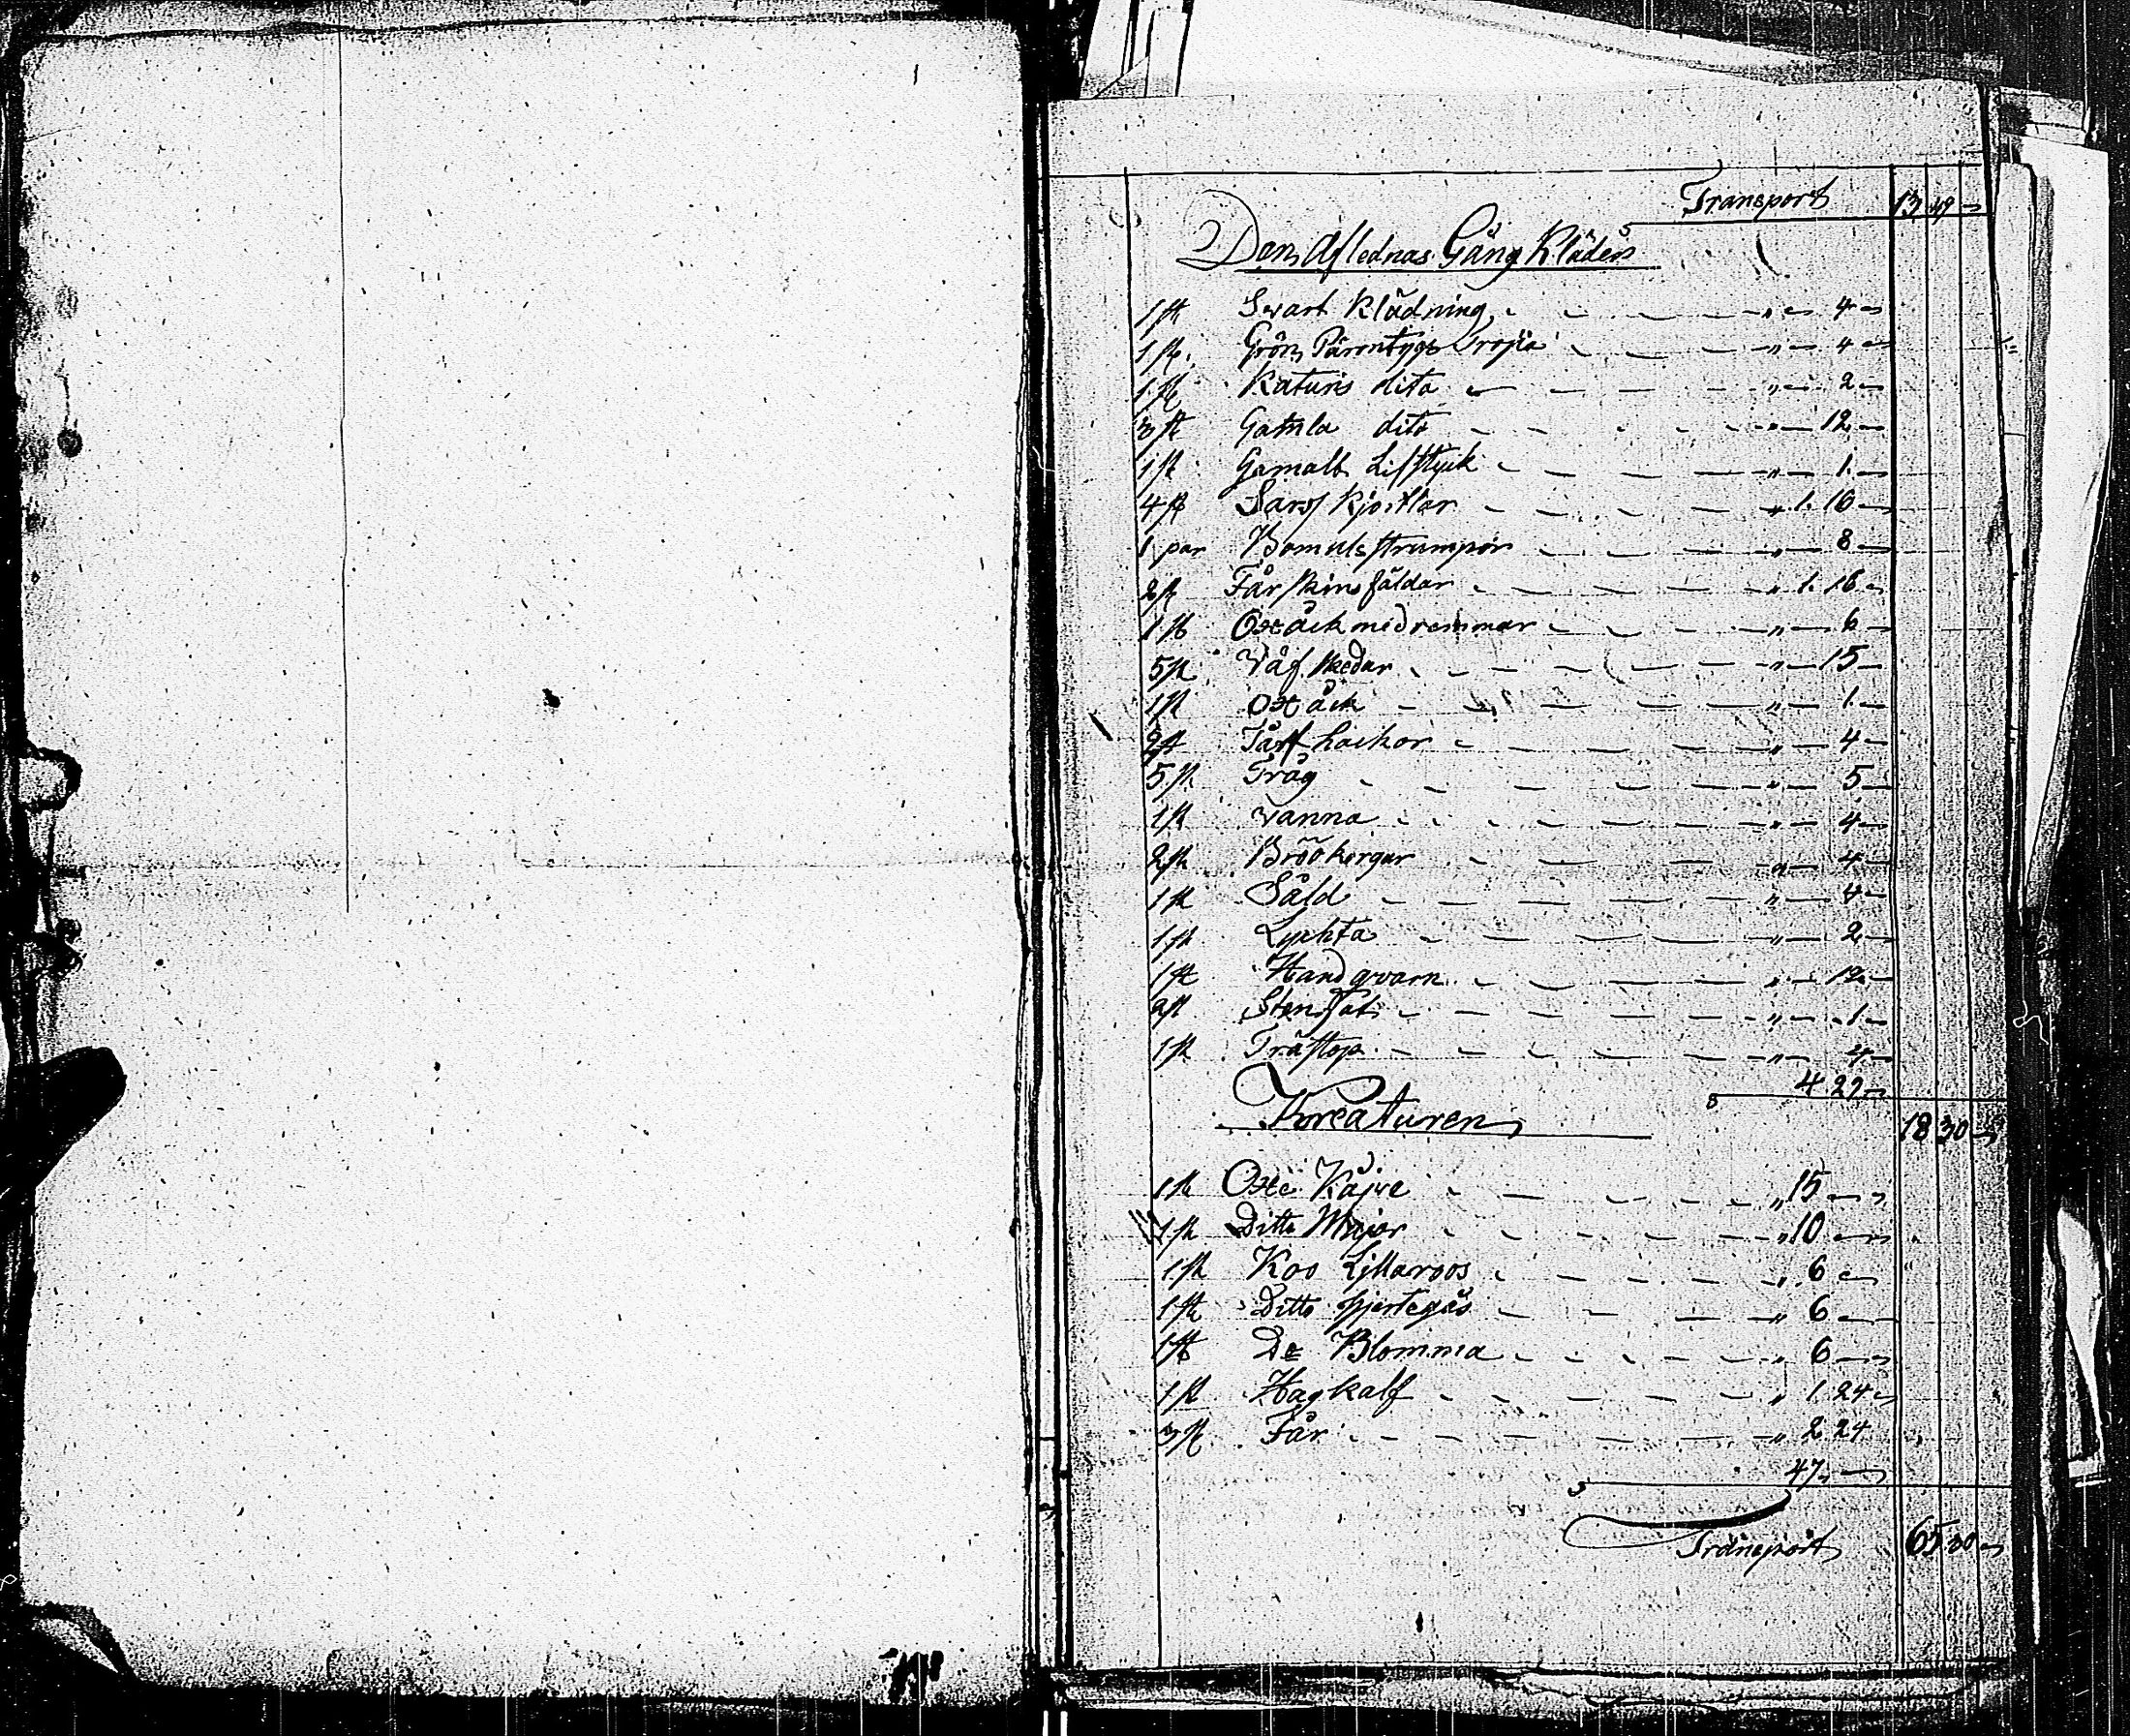 Transport 13 49 –
Den Aflednas Gång Kläder
1 st Swart Klädning „ – 4 –
1 st. Grön Tröjia „ – 4 –
1 st Katuns dito „ – 2 –
3 st Gamla dito „ – 12 –
1 st Gamalt Lifstyck „ – 1. –
4 st Sars Kjortlar „ 1. 16 –
1 par Bomulsstrumpor „ – 8 –
2 st Fårskinsfäldar „ 1. 16 –
1 st Oxeåck med remmar „ – 6 –
5 st Väfskedar „ – 15 –
1 st Oxåck „ – 1. –
2 st hackor „ – 4 –
5 st Tråg „ – 5 –
1 st vanna „ – 4 –
2 st Brödkorgar „ – 4 –
1 st Såld „ – 4 –
1 st Lyckta „ – 2 –
1 st Handqvarn „ – 12 –
2 st Stenfat „ – 1 –
1 st Trästop „ – 4 –
4 29 –
Kreaturen 18 30 –
1 st Oxe „ 15 –
1 st Ditto Major „ 10 –
1 st Koo Lillaroos „ 6 –
1 st Ditto „ 6 –
1 st Do Blomma „ 6 –
1 st Hagkalf „ 1 24 –
3 st Får „ 2 24
47. –
Transport 65 30 –